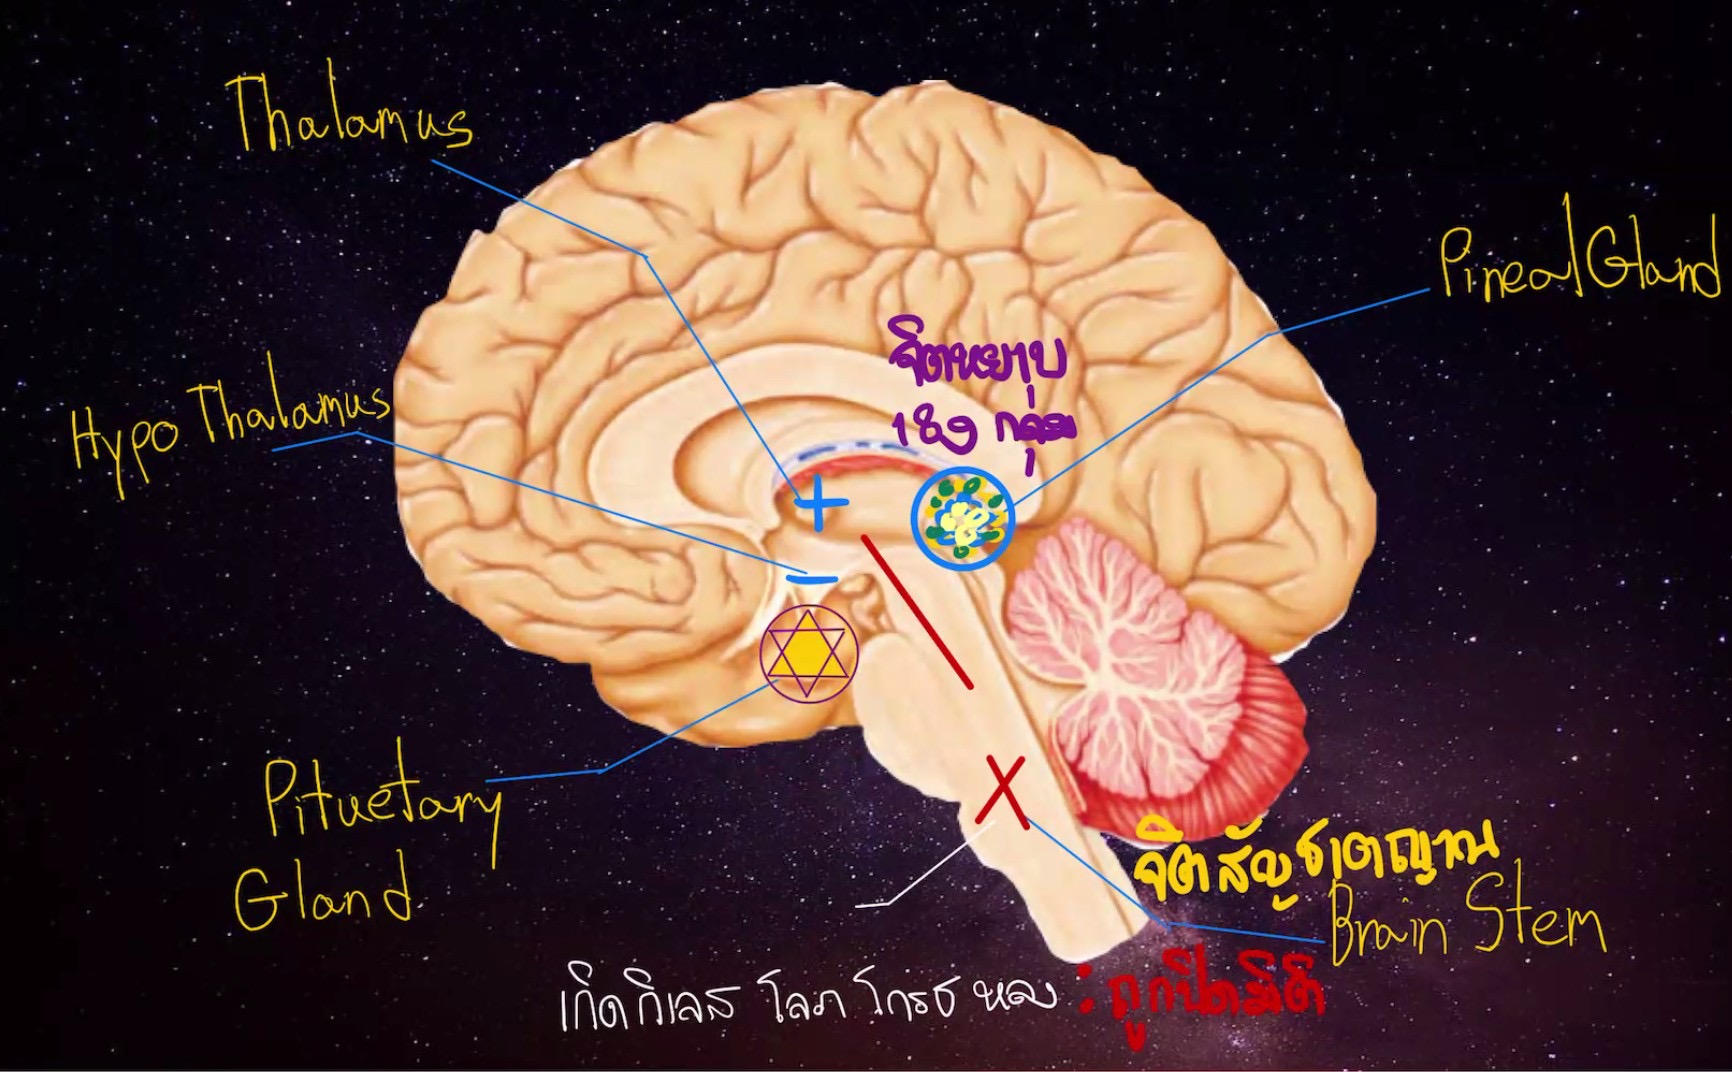 Thalamus
Pineal Gland
จิตหยาบ
Hypo Thalamus
189 กลุ่ม
+
−
Pituetary
Gland
X
จิตสัญชาตญาณ
Brain Stem
เกิดกิเลส โลภ โกรธ หลง : ถูกปิดมิติ